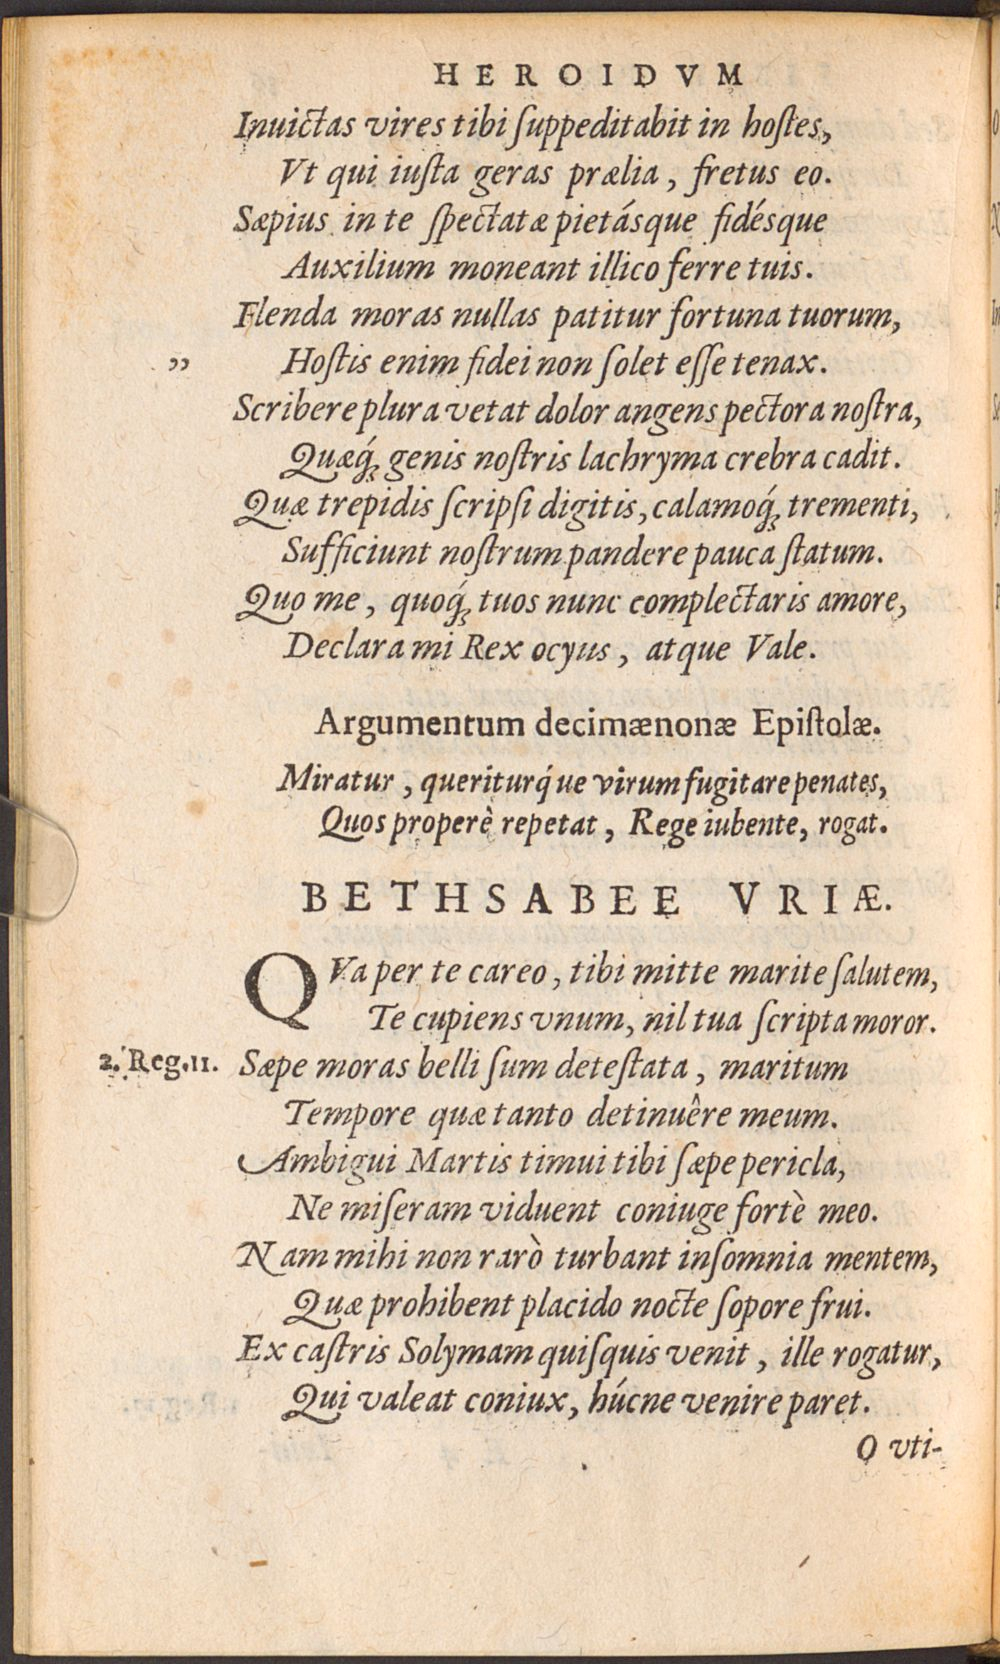 HEROIDVM
Inuictas vires tibi ſuppeditabit in hoſtes,
Vt qui iuſta geras prælia, fretus eo.
Sæpius in te ſpectatæ pietásque fidésque
Auxilium moneant illico ferre tuis.
Flenda moras nullas patitur fortuna tuorum,
,, Hoſtis enim fidei non ſolet eſſe tenax.
Scribere plura vetat dolor angens pectora noſtra,
Quæq́; genis noſtris lachryma crebra cadit.
Quæ trepidis ſcripſi digitis, calamoq́; trementi,
Sufficiunt noſtrum pandere pauca ſtatum.
Quo me, quoq́; tuos nunc complectaris amore,
Declara mi Rex ocyus, atque Vale.
Argumentum decimænonæ Epiſtolæ.
Miratur, queriturq́ue virum fugitare penates,
Quos properè repetat, Rege iubente, rogat.
BETHSABEE VRIÆ.
QVa per te careo, tibi mitte marite ſalutem,
Te cupiens vnum, nil tua ſcripta moror.
2. Reg. 11. Sæpe moras belli ſum deteſtata, maritum
Tempore quæ tanto detinuêre meum.
Ambigui Martis timui tibi ſæpe pericla,
Ne miſeram viduent coniuge fortè meo.
Nam mihi non rarò turbant inſomnia mentem,
Quæ prohibent placido nocte ſopore frui.
Ex caſtris Solymam quiſquis venit, ille rogatur,
Qui valeat coniux, húcne venire paret.
O vti-